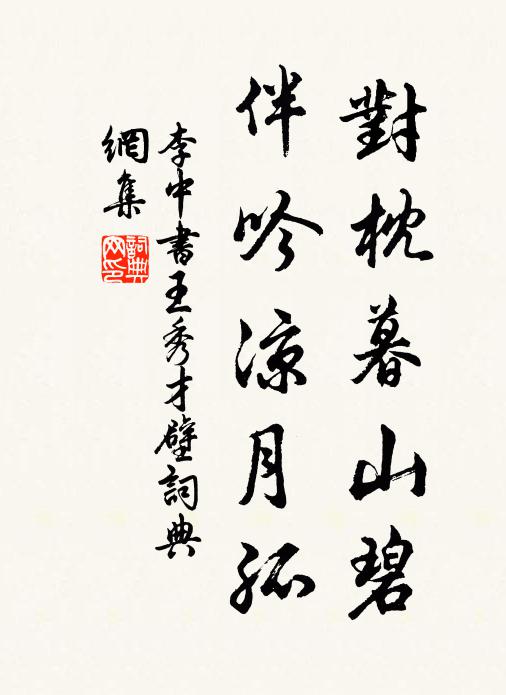 對枕暮山碧
伴吟涼月孤
李中書王秀才壁詞典
網集
詞典网印